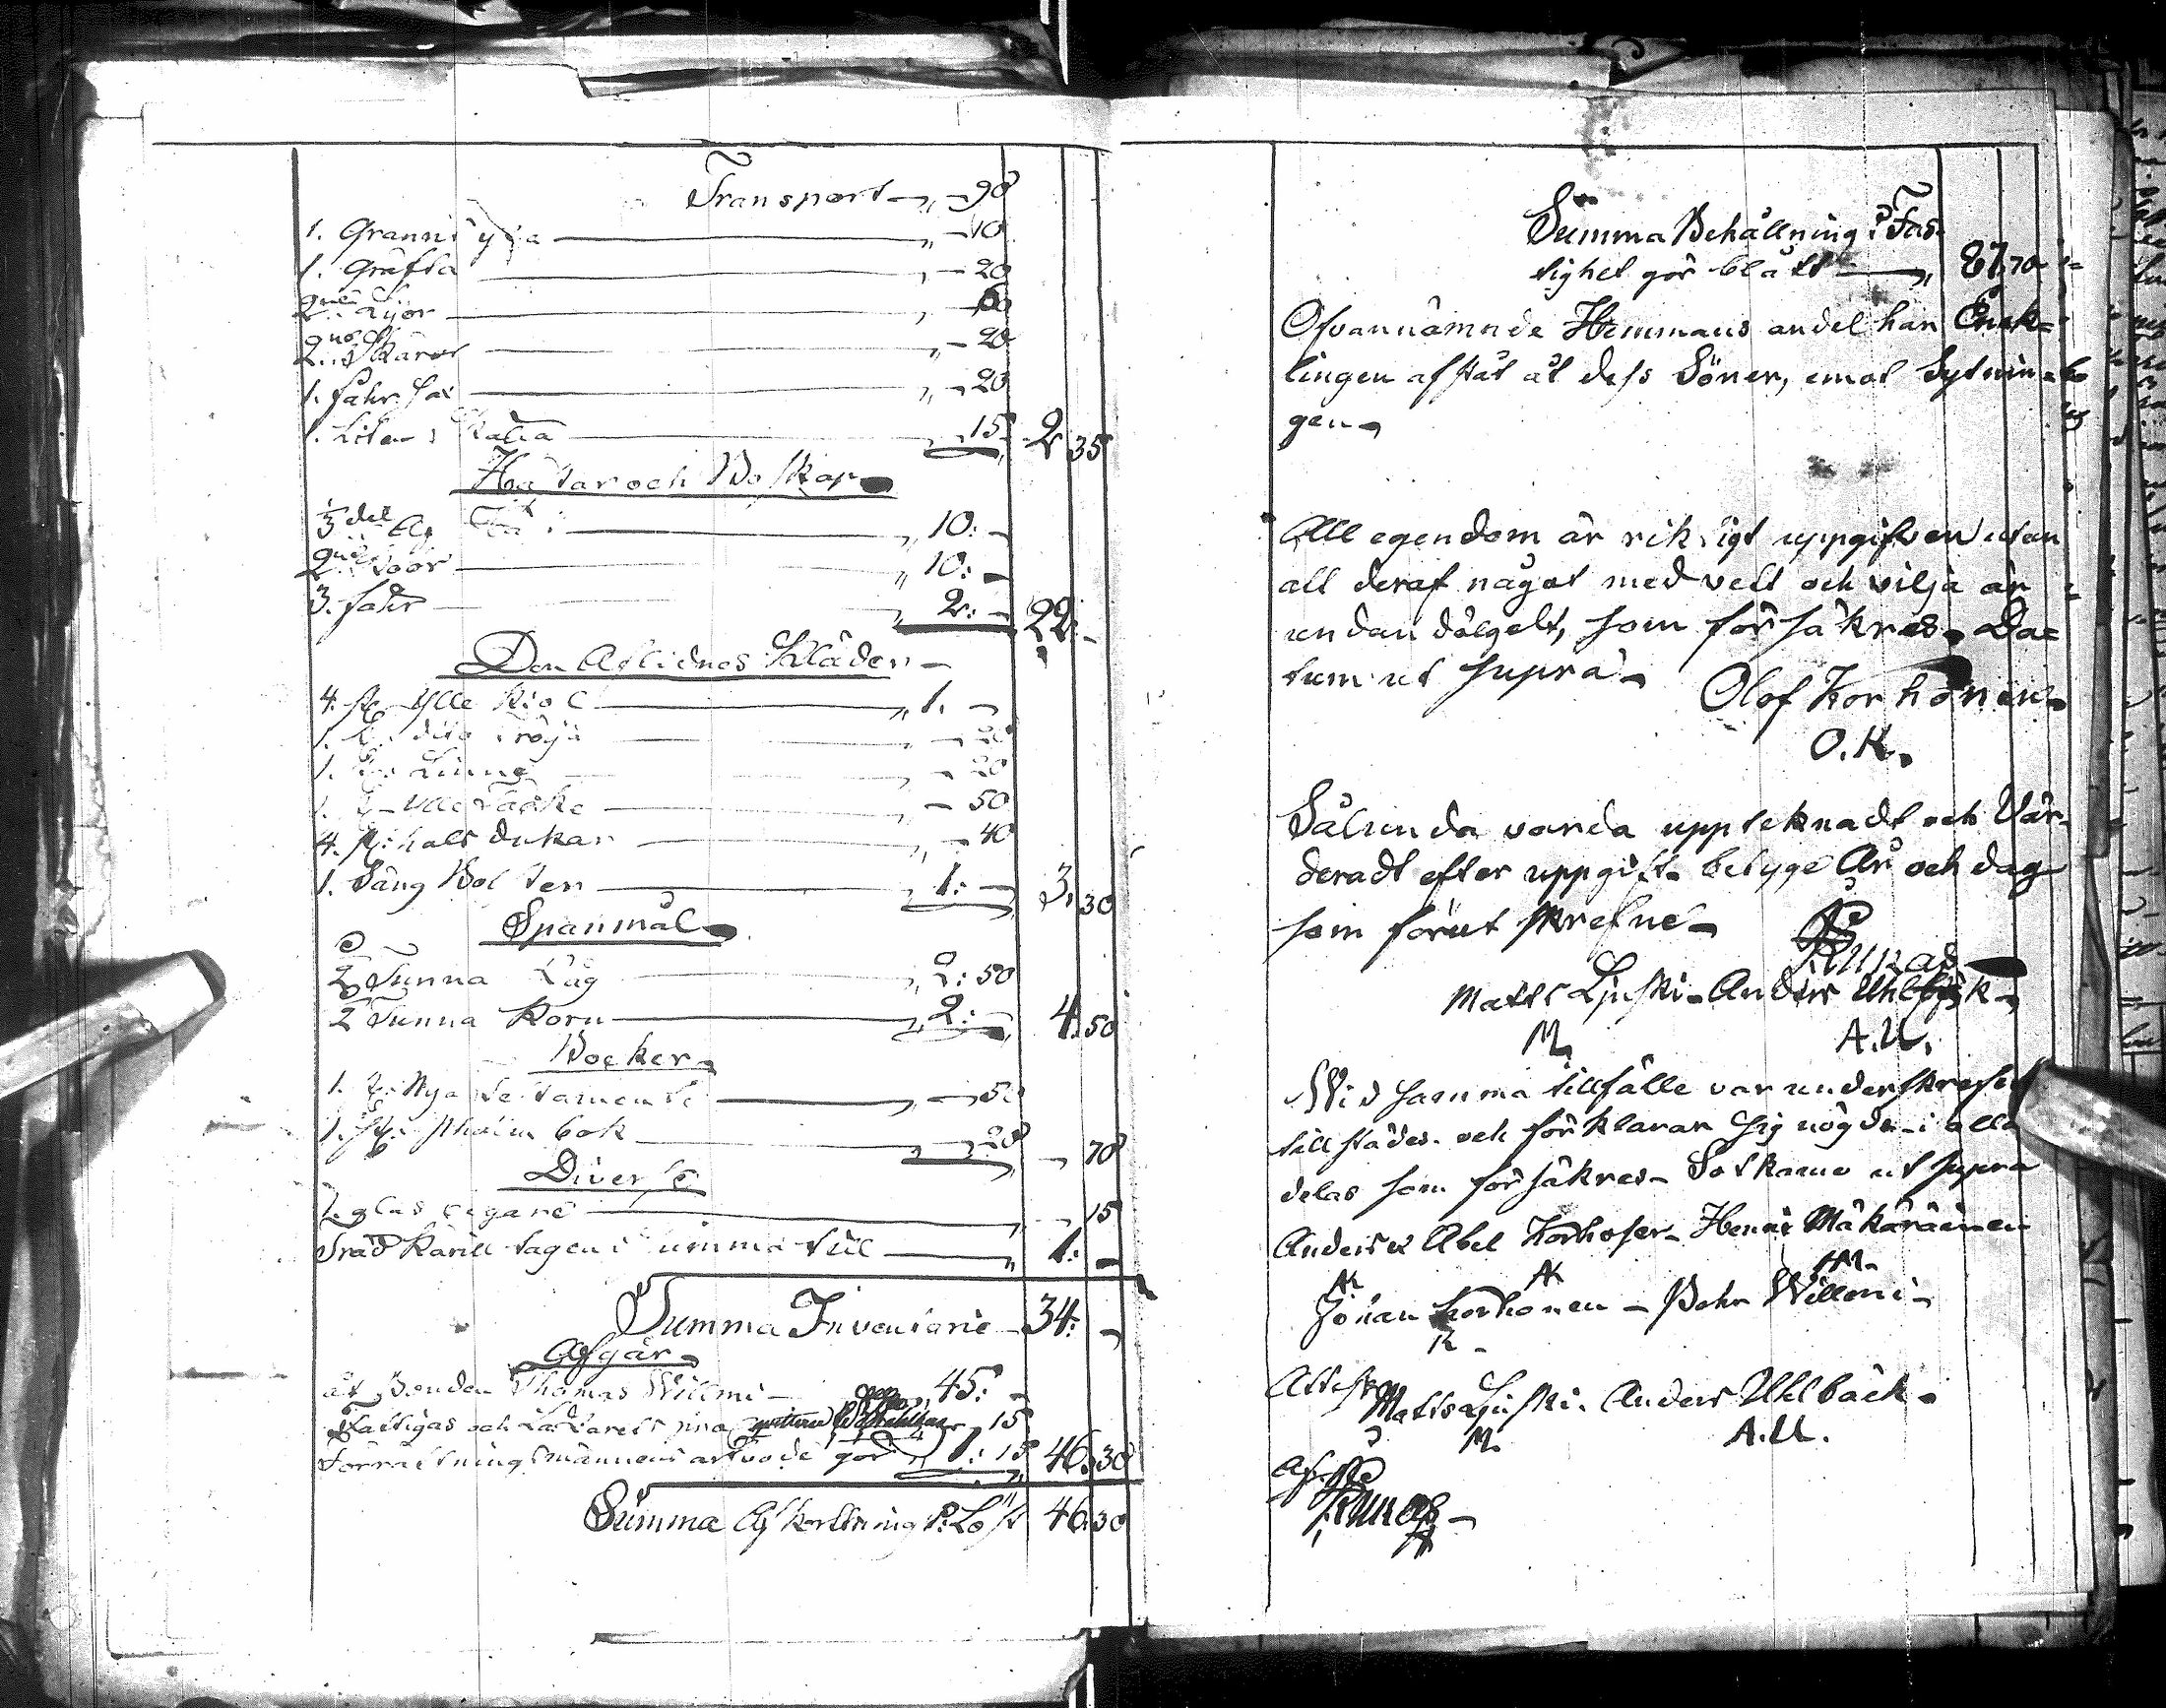 Transport —„— 90
1. Grannsyxa — „ — 10
1. Gräfta — „ — 20
2ne Lijor — „ — 60
2ne Skäror — „ — 20
1. fahr Sax — „ — 20
1. Liten — „ — 15 2 35
Hästar och Boskap
½ del Eg — „ 10: —
2ne Koor — „ 10: —
3. fahr — „ 2: — 22: —
Den Aflidnes Kläder —
4. st. Ylle Kiol — „ 1. —
1. st. dito Tröja — „ — 20
1. st. Linne — „ — 20
1. st. Ylle — „ — 50
4. st. halsdukar — „ — 40
1. Säng Bolster — „ 1: — 3. 30
Spanmål
½ Tunna Råg — „ 2: 50
½ Tunna Korn — „ 2: — 4. 50
Böcker
1. st. Nya Testamente — „ — 50
1. st. Psalm bok — „ — 20 — 70
Diverse
2. glas — „ — 15
Träd Käril tagen i Summa till — „ 1: —
Summa Inventarie — 34: —
Afgår
åt Bonden Thomas Willmi — 45: —
Fattigas och Lazarets — 15
Förrättningsmännens arfvode gör „ 1: 15 46. 30
Summa Afkortning P: Löst 46. 30
Summa Behållning i Fas-
tighet gör blått — „ 87. 70
Ofvannämnde Hemmans andel har Enck=
lingen afstat åt dess Söner, emot Sytnin=
gen
All egendom är riktigt uppgifven utan
att deraf något med vett och vilja är
undandölgelt, som försäkres. Da=
tum ut Supra Olof Korhonen
O.K.
Sålunda varda uppteknadt och Vär-
deradt efter uppgift betyge År och dag
som förut skrefne
Matts Ljuski — Anders Uhlbäck
M A.U.
Wid samma tillfälle var underskrefne
tillstädes och förklarar sig nögde i alla
delas som försäkres — Sotkamo ut Supra
Anders & Abel Korhoser — Henric Mäkäräinen
AK AK HM
Johan Korhonen — Pehr Willmi —
K
Attest
Matts Ljuski. Anders Uhlbäck.
M. A.U.
Af